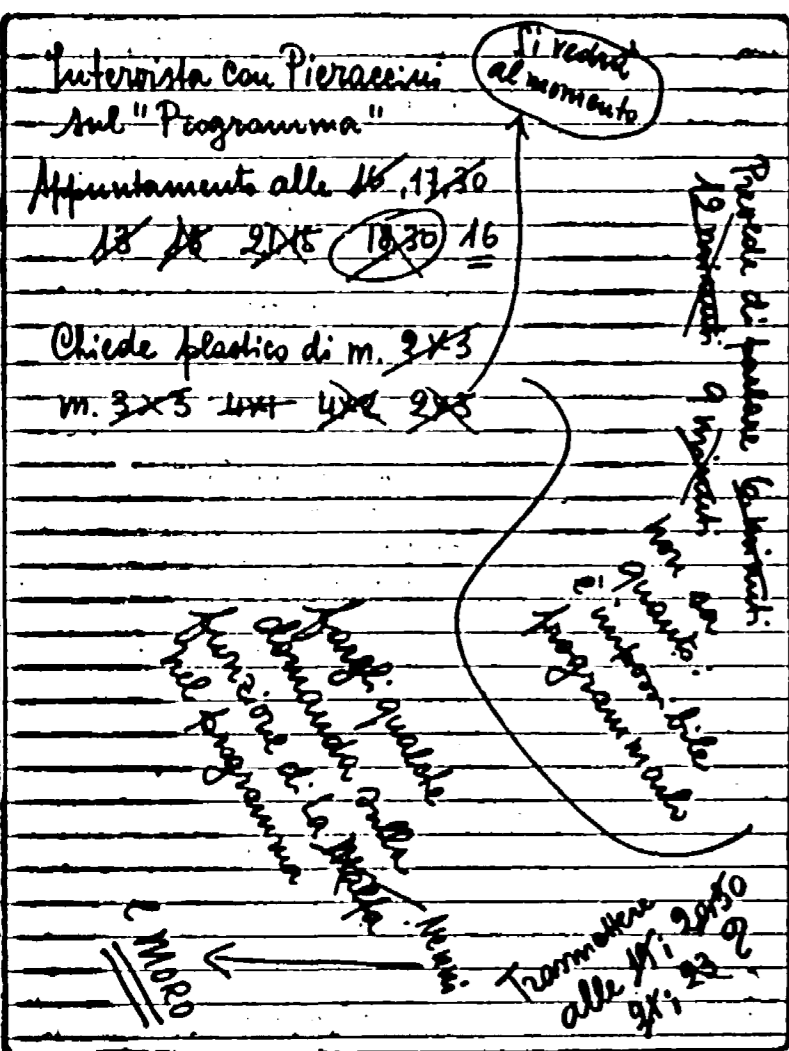 Intervista con Pieraccini
sul "Programma"
Si vedrà
al momento
Appuntamento alle 16, 17,30
21,15 18,30 16
Chiede plastico di m. 3x3
m. 3x5 4x1 4x2 2x3
Prevede di parlare 6 minuti
12 minuti 9 minuti
non sa
quanto:
è impossibile
programmarlo
Fargli qualche
domanda sulla
funzione di La Malfa Nenni
nel programma
e MORO
Trasmettere
alle